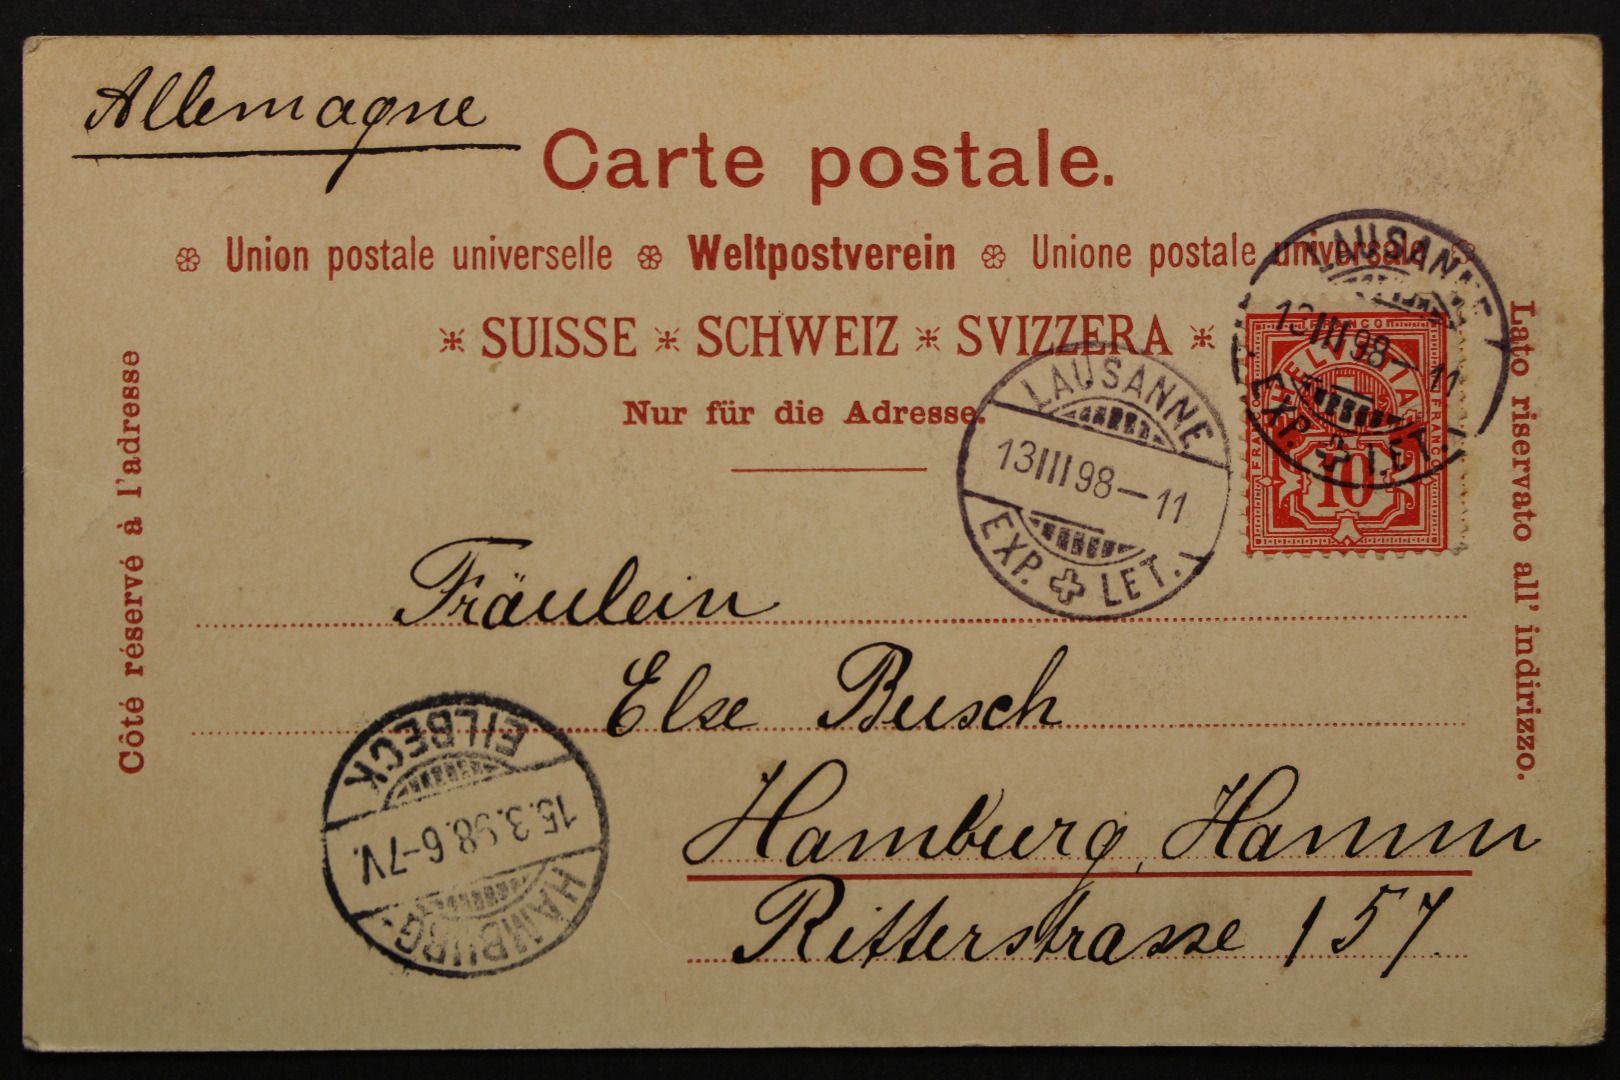 Allemagne
Carte postale.
Union postale universelle Weltpostverein Unione postale universale
SUISSE * SCHWEIZ * SVIZZERA
Nur für die Adresse.
Côté réservé à l'adresse
Lato riservato all' indirizzo.
LAUSANNE
13 III 98-11
EXP. LET.
LAUSANNE
13 III 98-11
EXP. LET.
FRANCO
HELVETIA
FRANCO
FRANCO
10
Fräulein
Else Busch
Hamburg, Hamm
Ritterstrasse 157.
HAMBURG-
15.3.98.6-7V.
EILBECK